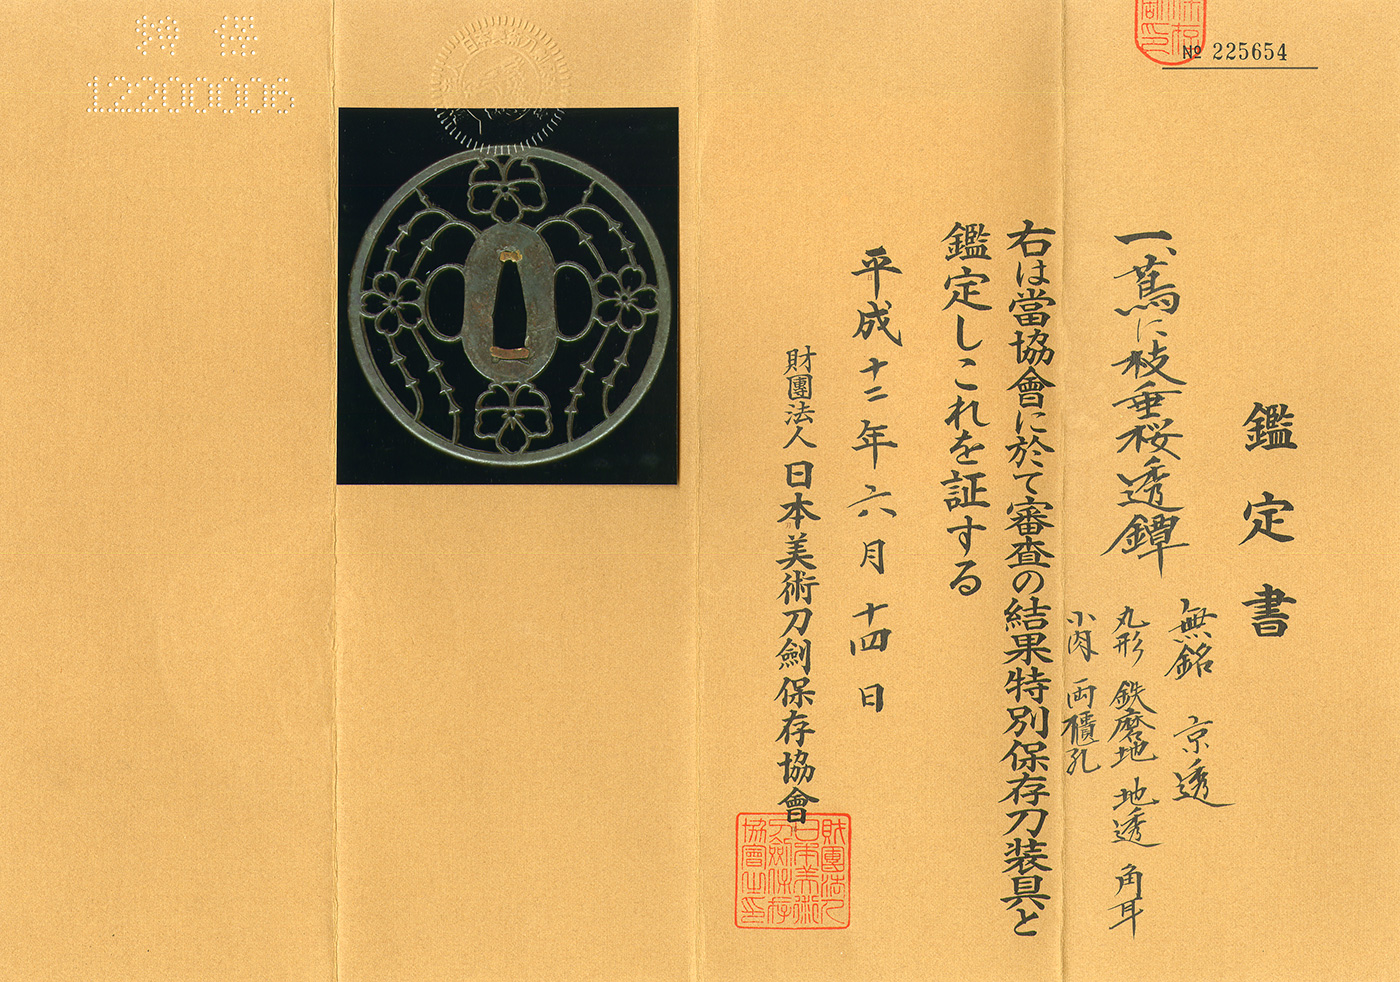 № 225654
鑑定書
一、蔦に枝垂桜透鐔
無銘 京透
丸形 鉄磨地 地透 角耳
小肉 両櫃孔
右は當協會に於て審査の結果特別保存刀装具と
鑑定しこれを証する
平成十二年六月十四日
財團法人 日本美術刀劍保存協會
財團法人
日本美術
刀劍保存
協會之印
特保
12200006